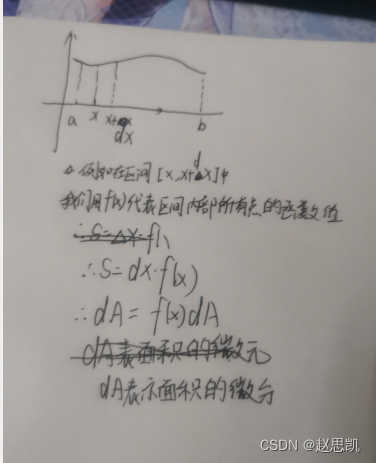 a x x+dx b
dx
例如在区间[x, x+dx]中
我们用f(x)代表区间内部所有点的函数值
∴S=Δx·f(
∴S=dx·f(x)
∴dA=f(x)dA
dA表面积的微元
dA表示面积的微分
CSDN @赵思凯